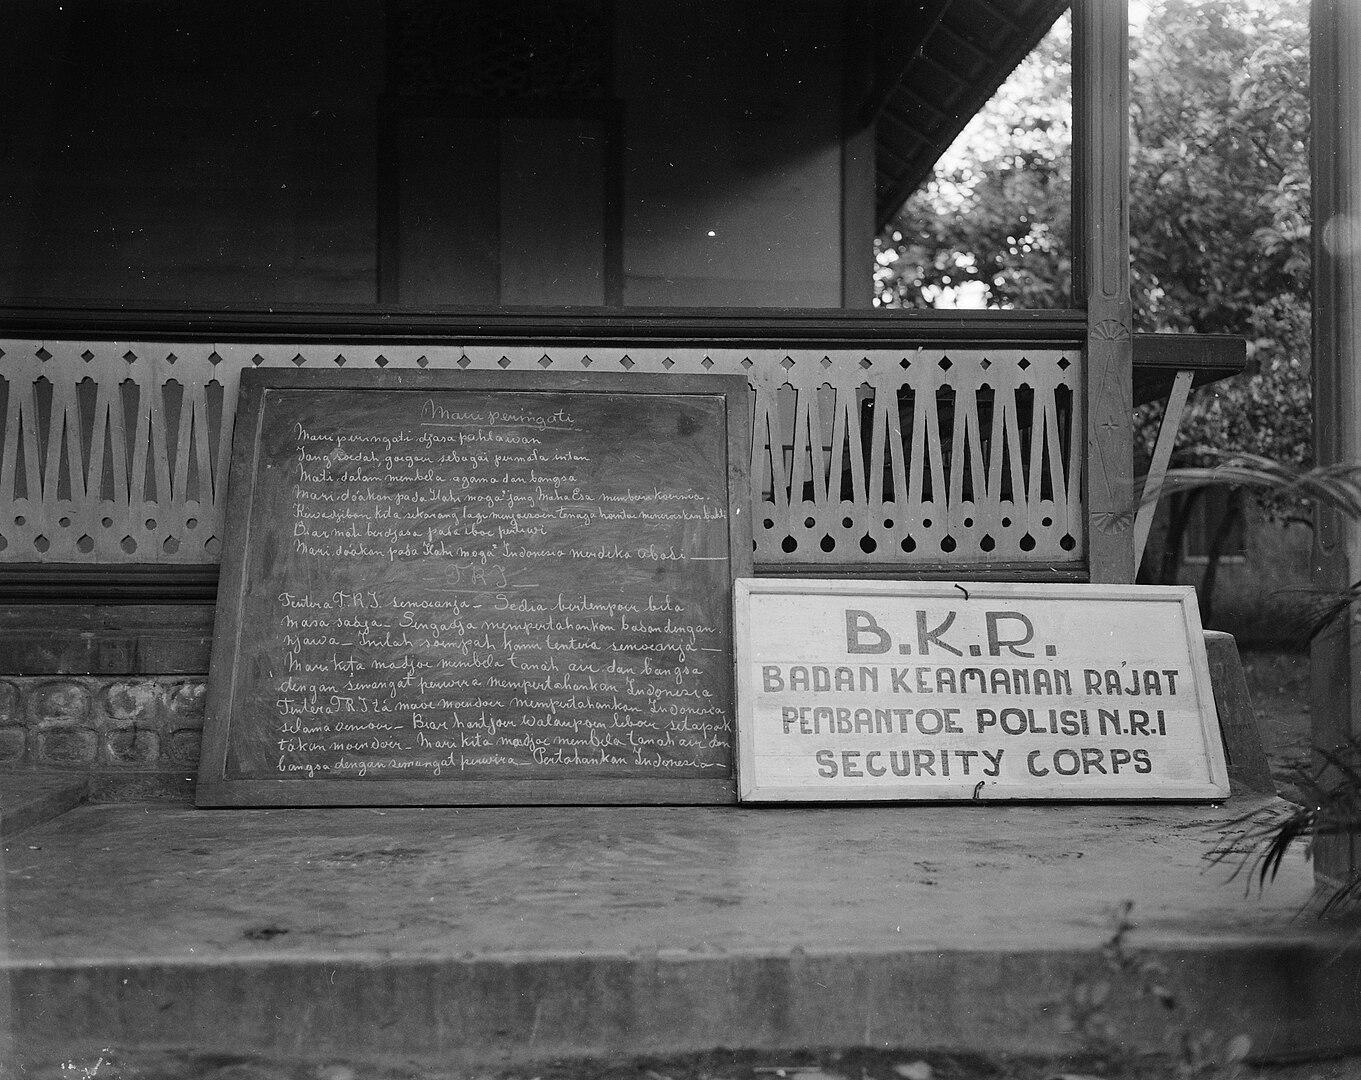 Mari peringati
Mari peringati djasa pahlawan
Jang soedah goegoer sebagai permata intan
Mati dalam membela agama dan bangsa
Mari do'akan pada Ilahi moga² jang Maha Esa memberi koernia.
Kewadjiban kita sekarang lagi menjoesoen tenaga
Biar mati berdjasa pada iboe pertiwi
Mari do'akan pada Ilahi moga² Indonesia merdeka abadi
T.R.I.
Tentera T.R.I. semoeanja - Sedia bertempoer bila
masa sadja - Sengadja mempertahankan badan dengan
njawa - Inilah soempah kami tentera semoeanja -
Mari kita madjoe membela tanah air dan bangsa
dengan semangat perwira mempertahankan Indonesia
Tentera T.R.I. ta' mave moendoer mempertahankan Indonesia
selama oemoer - Biar hantjoer walaupoen leboer setapak
takan moendoer - Mari kita madjoe membela tanah air dan
bangsa dengan semangat perwira - Pertahankan Indonesia -
B.K.R.
BADAN KEAMANAN RAJAT
PEMBANTOE POLISI N.R.I
SECURITY CORPS